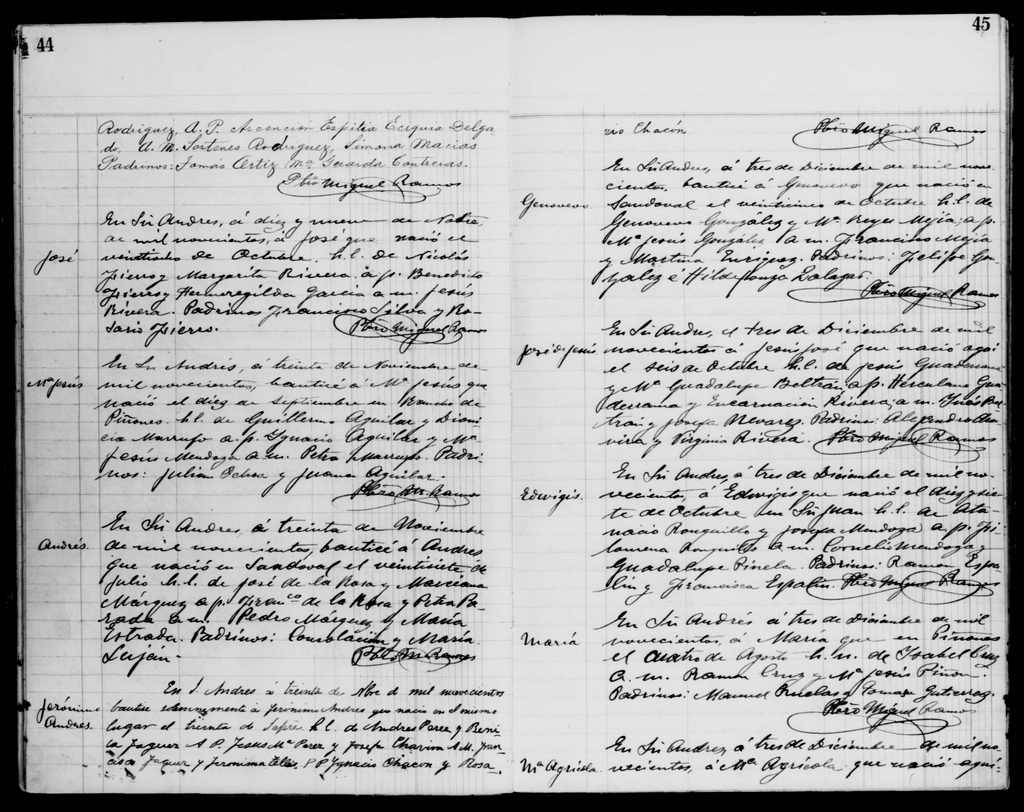 44
Rodriguez. A. P. Ascención Espitia Eciquia Delga
do, A. M. Sostenes Rodriguez, Simona Macias
Padrinos: Tomás Ortiz, Ma. Gerarda Contreras.
Pbro Miguel Ramos
José
En Sn Andres, á diez y nueve de Nobre.
de mil novecientos, á José que nació el
veintiuno de Octubre. h.l. de Nicolás
Fierro y Margarita Rivera. a.p. Benedicto
Fierro y Hermeregilda Garcia a.m. Jesús
Rivera. Padrinos Francisco Silva y Ro-
sario Fierro.
Pbro Miguel Ramos
Ma. Jesús
En Sn Andrés, á treinta de Noviembre de
mil novecientos, bauticé á Ma. Jesús que
nació el diez de Septiembre en Rancho de
Piñones. h.l. de Guillermo Aguilar y Dioni-
cia Marrufo a.p. Ygnacio Aguilar y Ma.
Jesús Mendoza a.m. Petra Marrufo. Padri-
nos: Julian Ochoa y Juana Aguilar.
Pbro M. Ramos
Andrés.
En Sn Andres, á treinta de Noviembre
de mil novecientos, bauticé á Andres
que nació en Sandoval el veintisiete de
Julio h.l. de José de la Rosa y Marciana
Márquez a.p. Franco. de la Rosa y Petra Pa-
rada a.m. Pedro Márquez y María
Estrada. Padrinos: Consolación y María
Luján.
Pbro M. Ramos
Jerónimo
Andres.
En S. Andres á treinta de Nbre d mil novecientos
bautice solemnemente á Jeronimo Andres que nacio en el mismo
lugar el treinta de Sepre. h.l. de Andres Perez y Beni
ta Jaquez A P. Jesus Ma. Perez y Josefa Chavira A.M. Fran
cisca Jaquez y Jeronima Teles. P P Ygnacio Chacon y Rosa
45
rio Chacón
Pbro Miguel Ramos
Genovevo.
En Sn Andres, á tres de Diciembre de mil nove
cientos. bauticé á Genovevo que nació en
Sandoval el veintinueve de Octubre h.l. de
Genovevo González y Ma. Reyes Mejía; a.p.
Ma. Jesús González a.m. Francisco Mejía
y Martina Enriquez. Padrinos: Felipe Gon
zalez é Hildefonza Salazar.
Pbro Miguel Ramos
José de Jesús.
En Sn Andres, el tres de Diciembre de mil
novecientos á Jesús José que nació aquí
el seis de Octubre h.l. de Jesús Guaderrama
y Ma. Guadalupe Beltrán; a.p. Herculano Gua
derrama y Encarnación Rivera; a.m. Inés Bel-
trán y Josefa Nevarez. Padrinos: Alejandro Ri-
vera y Virginia Rivera.
Pbro Miguel Ramos
Edwigis.
En Sn Andres, á tres de Diciembre de mil no-
vecientos, á Edwigis que nació el diez y sie-
te de Octubre en Sn Juan h.l. de Ata-
nacio Ronquillo y Josefa Mendoza a.p. Fi-
lomena Ronquillo a.m. Cornelio Mendoza y
Guadalupe Pinela. Padrinos: Ramon Espa-
lin y Francisca Espalin.
Pbro Miguel Ramos
María
En Sn Andrés á tres de Diciembre de mil
novecientos, á María que en Piñones
el cuatro de Agosto h.n. de Isabel Cruz
a.m. Ramon Cruz y Ma. Jesús Piñon.
Padrinos: Manuel Ornelas y Tomasa Gutierrez.
Pbro Miguel Ramos
Ma. Agrícola.
En Sn Andrez á tres de Diciembre de mil no-
vecientos, á Ma. Agrícola que nació aquí